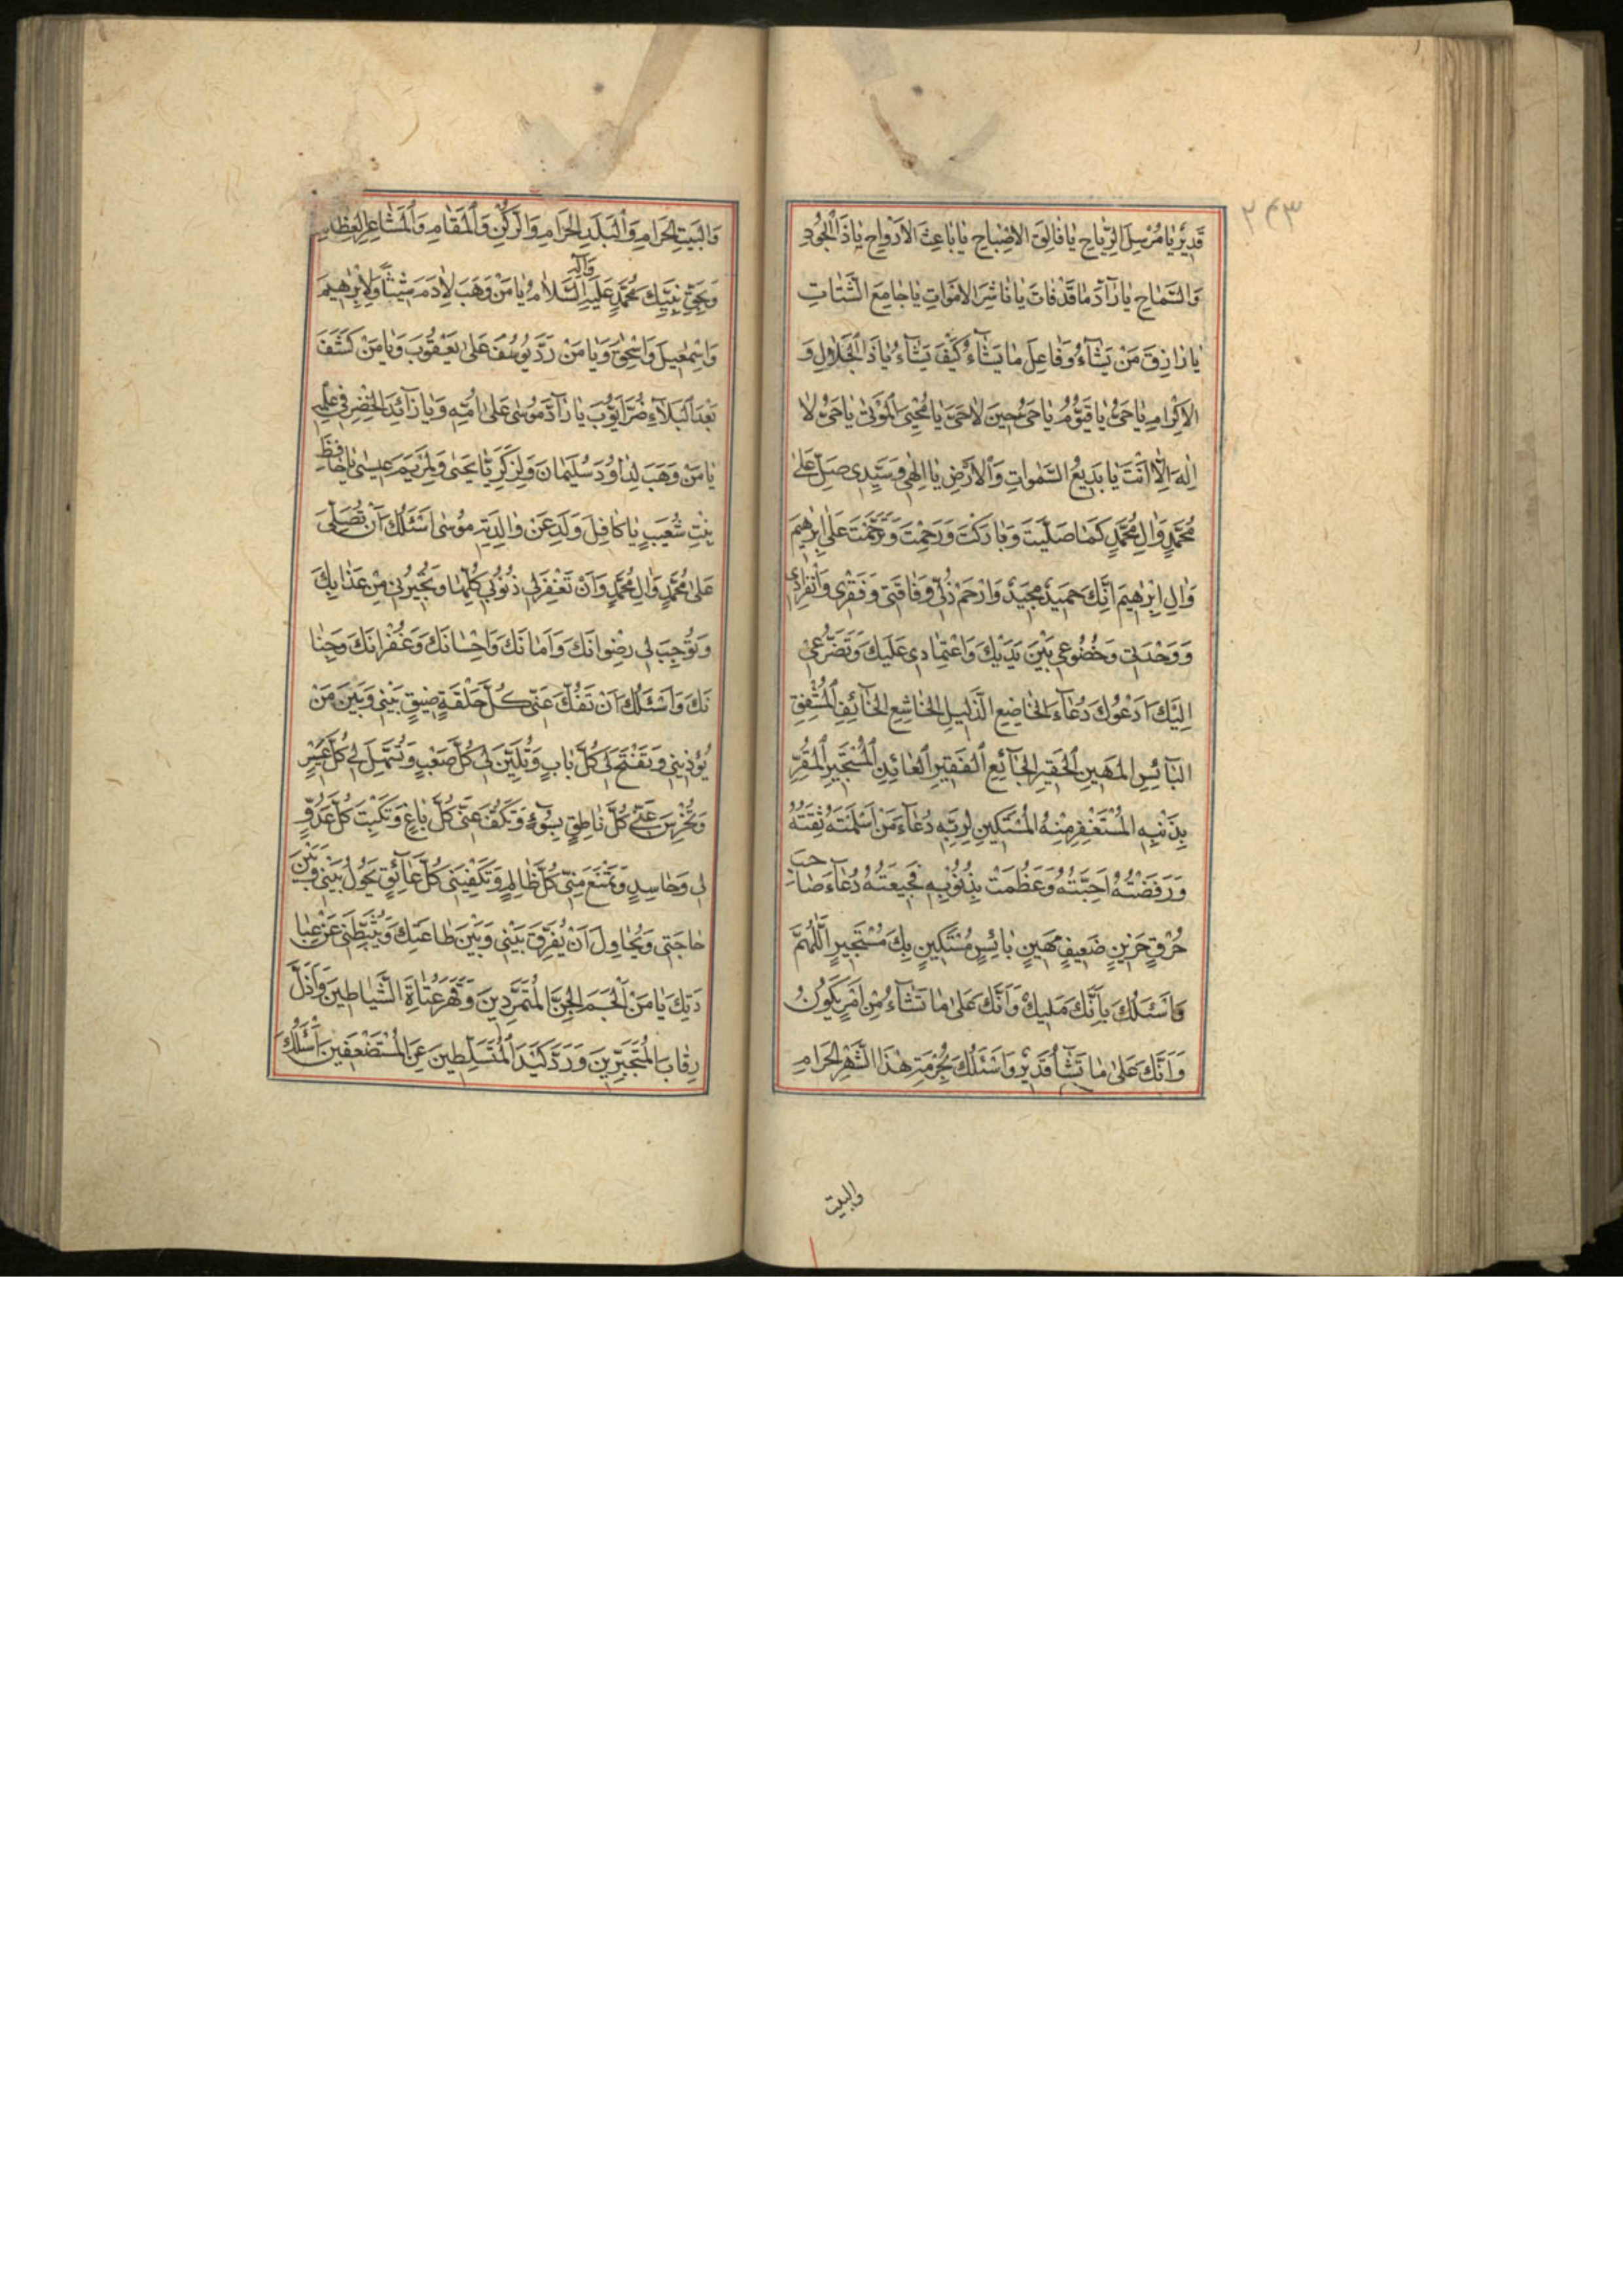 ۲۴۳
قَدِيرٌ يَا مُرْسِلَ الرِّيَاحِ يَا فَالِقَ الْاِصْبَاحِ يَا بَاعِثَ الْاَرْوَاحِ يَا ذَا الْجُودِ
وَالسَّمَاحِ يَا رَآدَّ مَا قَدْ فَاتَ يَا نَاشِرَ الْاَمْوَاتِ يَا جَامِعَ الشَّتَاتِ
يَا رَازِقَ مَنْ يَشَآءُ وَفَاعِلَ مَا يَشَآءُ كَيْفَ يَشَآءُ يَا ذَا الْجَلَالِ وَ
الْاِكْرَامِ يَا حَيُّ يَا قَيُّومُ يَا حَيُّ حِينَ لَا حَيَّ يَا مُحْيِيَ الْمَوْتٰى يَا حَيُّ لَا
اِلٰهَ اِلَّا اَنْتَ يَا بَدِيعُ السَّمٰوَاتِ وَالْاَرْضِ يَا اِلٰهِي وَسَيِّدِي صَلِّ عَلٰى
مُحَمَّدٍ وَاٰلِ مُحَمَّدٍ كَمَا صَلَّيْتَ وَبَارَكْتَ وَرَحِمْتَ وَتَرَحَّمْتَ عَلٰى اِبْرٰهِيمَ
وَاٰلِ اِبْرٰهِيمَ اِنَّكَ حَمِيدٌ مَجِيدٌ وَارْحَمْ ذُلِّي وَفَاقَتِي وَفَقْرِي وَانْفِرَادِي
وَوَحْدَتِي وَخُضُوعِي بَيْنَ يَدَيْكَ وَاعْتِمَادِي عَلَيْكَ وَتَضَرُّعِي
اِلَيْكَ اَدْعُوكَ دُعَآءَ الْخَاضِعِ الذَّلِيلِ الْخَاشِعِ الْخَآئِفِ الْمُشْفِقِ
الْبَآئِسِ الْمَهِينِ الْحَقِيرِ الْجَآئِعِ الْفَقِيرِ الْعَائِذِ الْمُسْتَجِيرِ الْمُقِرِّ
بِذَنْبِهِ الْمُسْتَغْفِرِ مِنْهُ الْمُسْتَكِينِ لِرَبِّهِ دُعَآءَ مَنْ اَسْلَمَتْهُ ثِقَتُهُ
وَرَفَضَتْهُ اَحِبَّتُهُ وَعَظُمَتْ بِذُنُوبِهِ فَجِيعَتُهُ دُعَآءَ صَاحِبِ
حُرْقٍ حَزِينٍ ضَعِيفٍ مَهِينٍ بَائِسٍ مُسْتَكِينٍ بِكَ مُسْتَجِيرٍ اَللّٰهُمَّ
وَاَسْئَلُكَ بِاَنَّكَ مَلِيكٌ وَاَنَّكَ عَلٰى مَا تَشَآءُ مِنْ اَمْرٍ يَكُونُ
وَاَنَّكَ عَلٰى مَا تَشَآءُ قَدِيرٌ وَاَسْئَلُكَ بِحُرْمَةِ هٰذَا الشَّهْرِ الْحَرَامِ
والبيت
وَالْبَيْتِ الْحَرَامِ وَالْبَلَدِ الْحَرَامِ وَالرُّكْنِ وَالْمَقَامِ وَالْمَشَاعِرِ الْعِظَامِ
وَبِحَقِّ نَبِيِّكَ مُحَمَّدٍ عَلَيْهِ وَاٰلِهِ السَّلَامُ يَا مَنْ وَهَبَ لِاٰدَمَ شِيثًا وَلِاِبْرٰهِيمَ
وَاِسْمٰعِيلَ وَاِسْحٰقَ وَيَا مَنْ رَدَّ يُوسُفَ عَلٰى يَعْقُوبَ وَيَا مَنْ كَشَفَ
بَعْدَ الْبَلَآءِ ضُرَّ اَيُّوبَ يَا رَآدَّ مُوسٰى عَلٰى اُمِّهِ وَيَا زَآئِدَ الْخِضْرِ فِي عِلْمِهِ
يَا مَنْ وَهَبَ لِدَاوُدَ سُلَيْمَانَ وَلِزَكَرِيَّا يَحْيٰى وَلِمَرْيَمَ عِيسٰى يَا حَافِظَ
بِنْتِ شُعَيْبٍ يَا كَافِلَ وَلَدِ عَنْ وَالِدَتِهِ مُوسٰى اَسْئَلُكَ اَنْ تُصَلِّيَ
عَلٰى مُحَمَّدٍ وَاٰلِ مُحَمَّدٍ وَاَنْ تَغْفِرَ لِي ذُنُوبِي كُلَّهَا وَتُجِيرَنِي مِنْ عَذَابِكَ
وَتُوجِبَ لِي رِضْوَانَكَ وَاَمَانَكَ وَاِحْسَانَكَ وَغُفْرَانَكَ وَجِنَا
نَكَ وَاَسْئَلُكَ اَنْ تَفُكَّ عَنِّي كُلَّ حَلْقَةِ ضِيقٍ بَيْنِي وَبَيْنَ مَنْ
يُؤْذِينِي وَتَفْتَحَ لِي كُلَّ بَابٍ وَتُلَيِّنَ لِي كُلَّ صَعْبٍ وَتُسَهِّلَ لِي كُلَّ عَسِيرٍ
وَتُخْرِسَ عَنِّي كُلَّ نَاطِقٍ بِسُوٓءٍ وَتَكُفَّ عَنِّي كُلَّ بَاغٍ وَتَكْبِتَ كُلَّ عَدُوٍّ
لِي وَحَاسِدٍ وَتَمْنَعَ مِنِّي كُلَّ ظَالِمٍ وَتَكْفِيَنِي كُلَّ عَآئِقٍ يَحُولُ بَيْنِي وَبَيْنَ
حَاجَتِي وَيُحَاوِلَ اَنْ يُفَرِّقَ بَيْنِي وَبَيْنَ طَاعَتِكَ وَيُثَبِّطَنِي عَنْ عِبَا
دَتِكَ يَا مَنْ اَلْجَمَ الْجِنَّ الْمُتَمَرِّدِينَ وَقَهَرَ عُتَاةَ الشَّيَاطِينِ وَاَذَلَّ
رِقَابَ الْمُتَجَبِّرِينَ وَرَدَّ كَيْدَ الْمُتَسَلِّطِينَ عَنِ الْمُسْتَضْعَفِينَ اَسْئَلُكَ